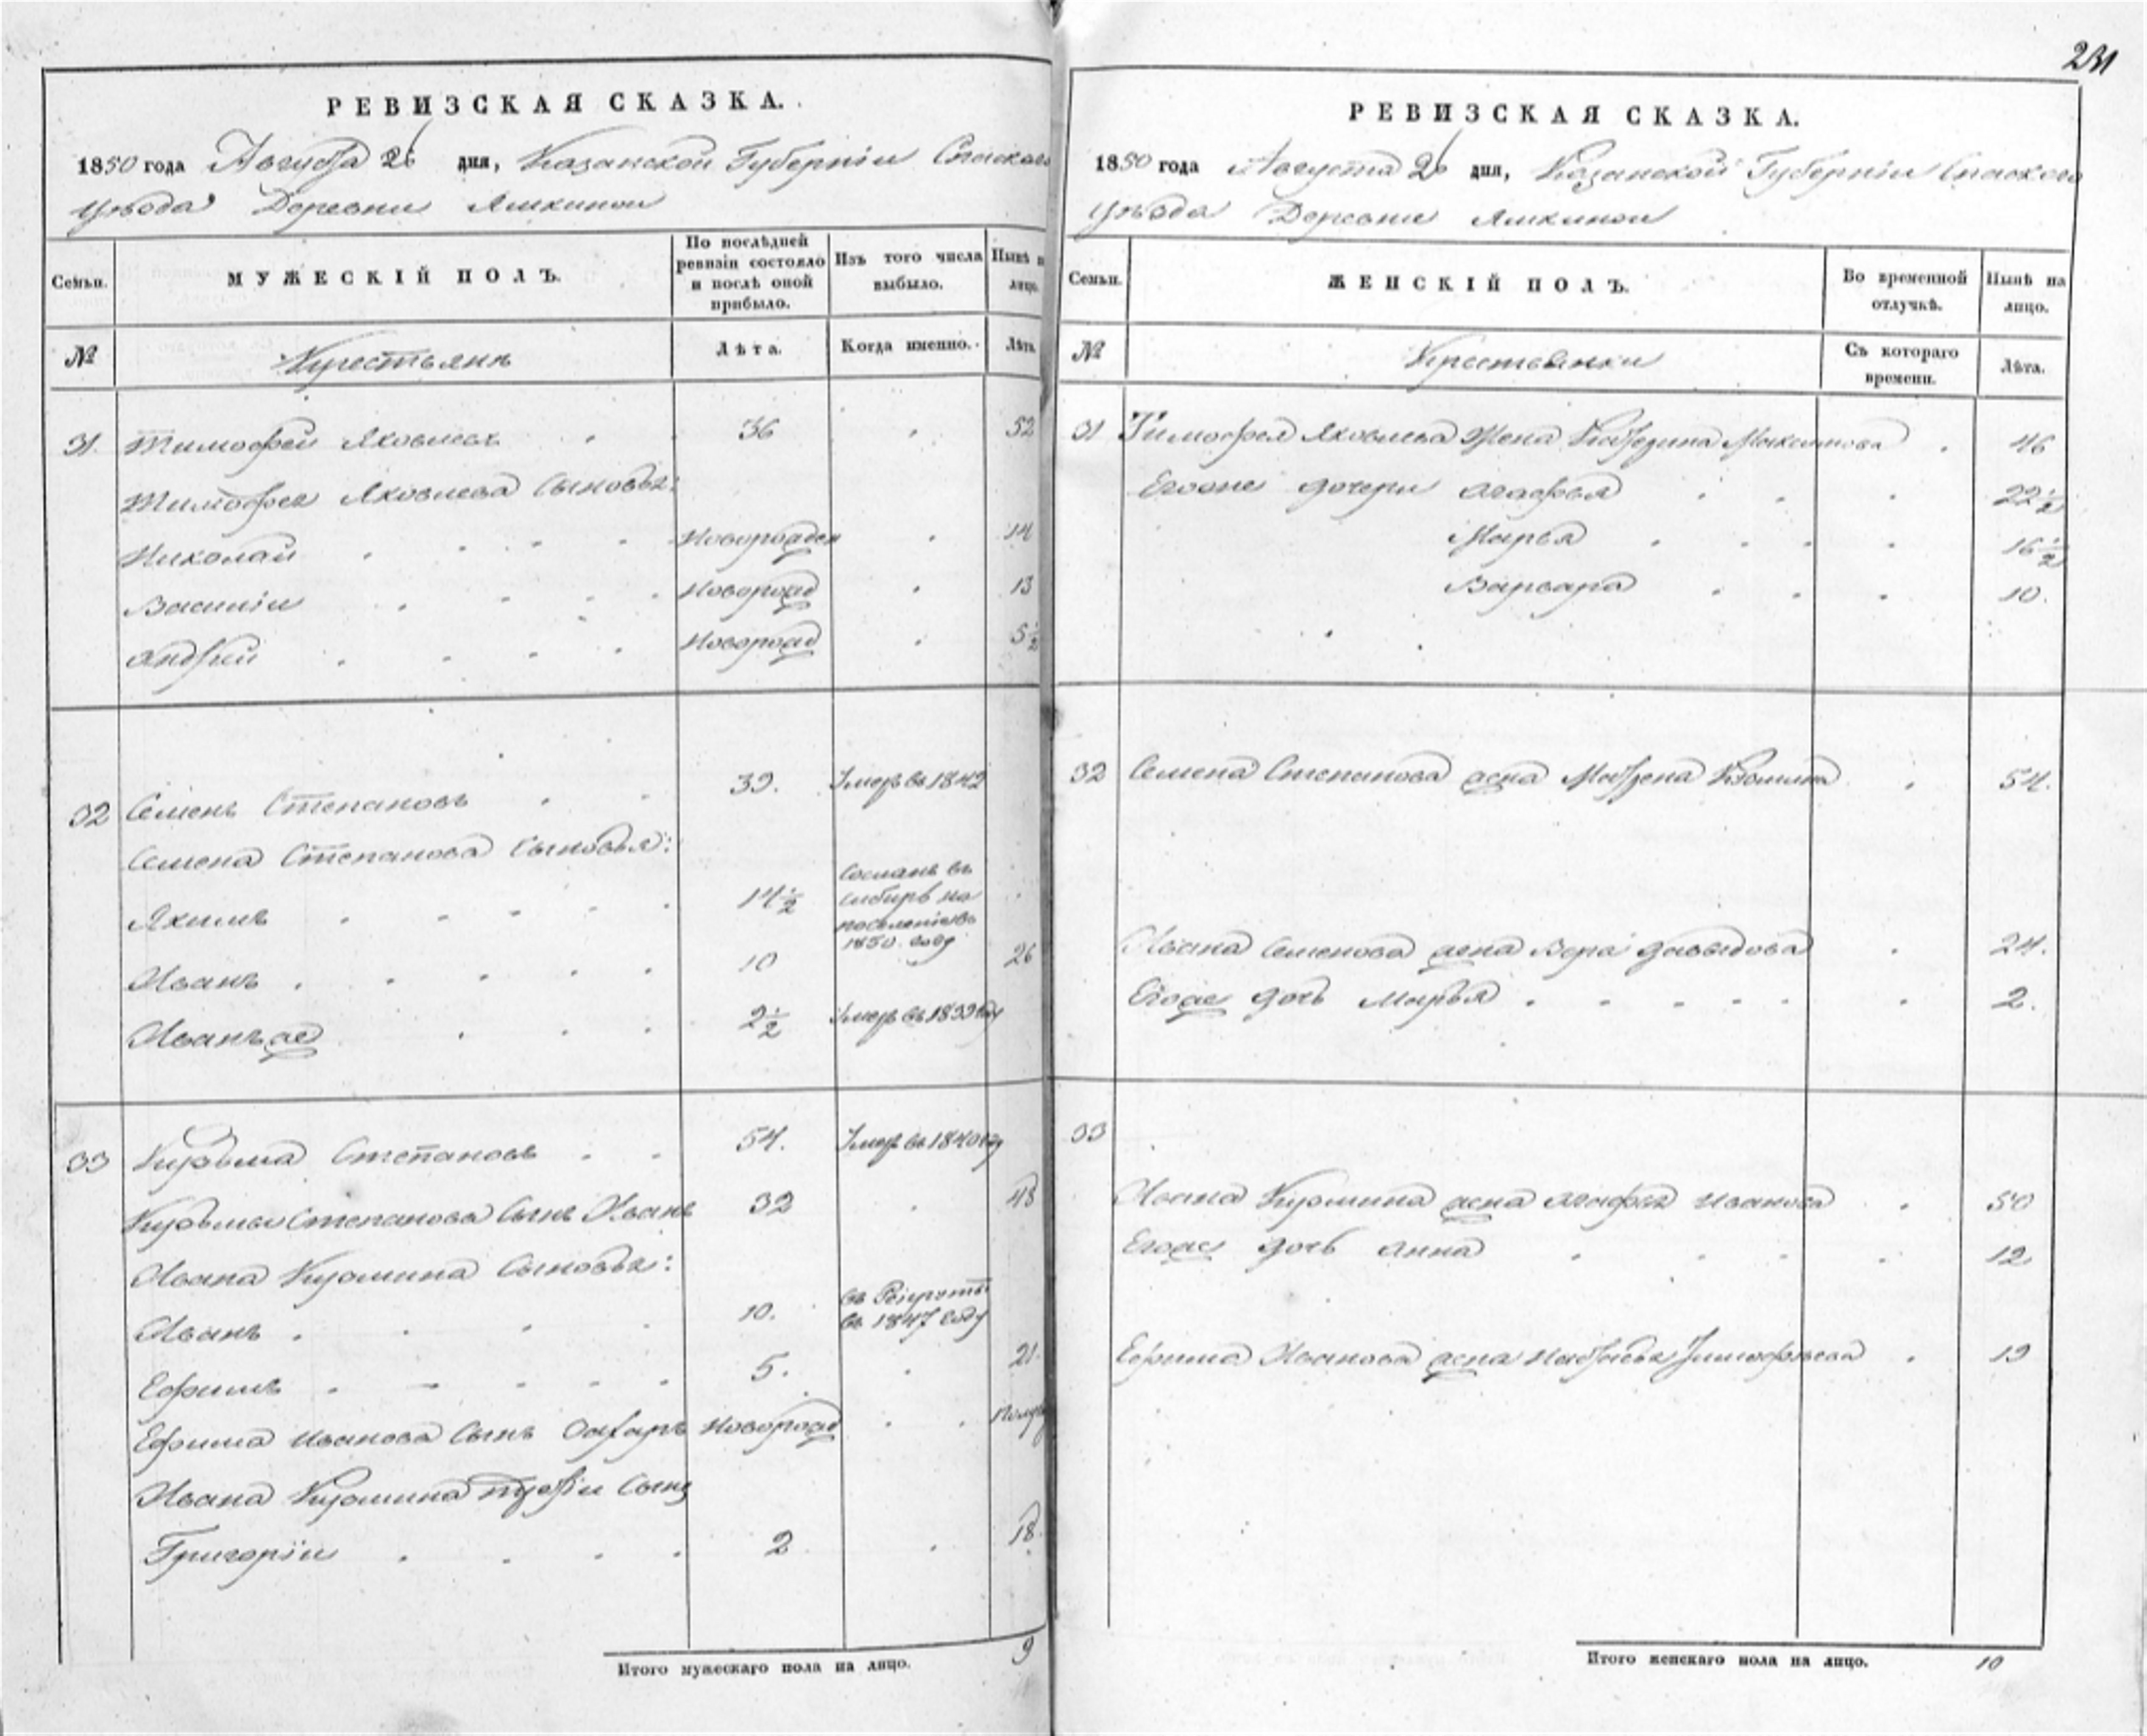 231
РЕВИЗСКАЯ СКАЗКА.
1850 года Августа 26 дня, Казанской Губерніи Спаскаго
уѣзда Деревни Ямкиной
Семьи.
МУЖЕСКІЙ ПОЛЪ.
По послѣдней
ревизіи состояло
и послѣ оной
прибыло.
Изъ того числа
выбыло.
Нынѣ н
лицо.
№
Крестьянъ
Лѣта.
Когда именно.
Лѣта
31. Тимофей Яковлевъ 36 52
Тимофея Яковлева Сыновья:
Николай Новорожден 14
Василій Новорожд 13
Андрей Новорожд 5½
32 Семенъ Степановъ 39. Умеръ въ 1842
Семена Степанова Сыновья:
Якимъ 14½ Сосланъ въ
Сибирь на
поселеніе въ
1850 году
Иванъ 10 26
Иванъ же 2½ Умеръ въ 1839 году
33 Кузьма Степановъ 54. Умеръ въ 1840 году
Кузьмы Степанова Сынъ Иванъ 32 48
Ивана Кузмина Сыновья:
Иванъ 10. въ Рекруты
въ 1847 году
Ефимъ 5. 21.
Ефима Иванова Сынъ Захаръ Новорожд
Ивана Кузмина третій Сынъ
Григорій 2 18.
Итого мужескаго пола на лицо. 9
РЕВИЗСКАЯ СКАЗКА.
1850 года Августа 26 дня, Казанской Губерніи Спаскаго
уѣзда Деревни Ямкиной
Семьи.
ЖЕНСКІЙ ПОЛЪ.
Во временной
отлучкѣ.
Нынѣ на
лицо.
№
Крестьянки
Съ котораго
времени.
Лѣта.
31 Тимофея Яковлева Жена Катерина Максимова 46
Егоже дочери Агафья 22½
Марья 16½
Варвара 10.
32 Семена Степанова жена Матрена Кзомина 54.
Ивана Семенова жена Вера Давыдова 24.
Егоже дочь Марья 2.
33
Ивана Кузмина жена Агафья Иванова 50
Егоже дочь Анна 12
Ефима Иванова жена Настасья Тимофеева 19
Итого женскаго пола на лицо. 10